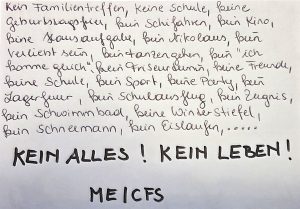 Kein Familientreffen, keine Schule, keine
Geburtstagsfeier, kein Schifahren, kein Kino,
keine Hausaufgabe, kein Nikolaus, kein
verliebt sein, kein tanzen gehen, kein "ich
komme gleich", kein Friseurbesuch, keine Freunde,
keine Schule, kein Sport, keine Party, kein
Lagerfeuer, kein Schulausflug, kein Zeugnis,
kein Schwimmbad, keine Winterstiefel,
kein Schneemann, kein Eislaufen, .....
KEIN ALLES! KEIN LEBEN!
ME/CFS